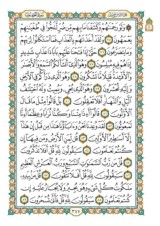 وَلَوْ رَحِمْنَٰهُمْ وَكَشَفْنَا مَا بِهِم مِّن ضُرٍّ لَّلَجُّوا۟ فِى طُغْيَٰنِهِمْ
يَعْمَهُونَ وَلَقَدْ أَخَذْنَٰهُم بِٱلْعَذَابِ فَمَا ٱسْتَكَانُوا۟ لِرَبِّهِمْ
وَمَا يَتَضَرَّعُونَ حَتَّىٰٓ إِذَا فَتَحْنَا عَلَيْهِم بَابًا ذَا عَذَابٍ شَدِيدٍ
إِذَا هُمْ فِيهِ مُبْلِسُونَ وَهُوَ ٱلَّذِىٓ أَنشَأَ لَكُمُ ٱلسَّمْعَ وَٱلْأَبْصَٰرَ
وَٱلْأَفْـِٔدَةَ قَلِيلًا مَّا تَشْكُرُونَ وَهُوَ ٱلَّذِى ذَرَأَكُمْ فِى ٱلْأَرْضِ
وَإِلَيْهِ تُحْشَرُونَ وَهُوَ ٱلَّذِى يُحْىِۦ وَيُمِيتُ وَلَهُ ٱخْتِلَٰفُ
ٱلَّيْلِ وَٱلنَّهَارِ أَفَلَا تَعْقِلُونَ بَلْ قَالُوا۟ مِثْلَ مَا قَالَ
ٱلْأَوَّلُونَ قَالُوٓا۟ أَءِذَا مِتْنَا وَكُنَّا تُرَابًا وَعِظَٰمًا أَءِنَّا
لَمَبْعُوثُونَ لَقَدْ وُعِدْنَا نَحْنُ وَءَابَآؤُنَا هَٰذَا مِن قَبْلُ إِنْ هَٰذَآ
إِلَّآ أَسَٰطِيرُ ٱلْأَوَّلِينَ قُل لِّمَنِ ٱلْأَرْضُ وَمَن فِيهَآ إِن كُنتُمْ
تَعْلَمُونَ سَيَقُولُونَ لِلَّهِ قُلْ أَفَلَا تَذَكَّرُونَ
قُلْ مَن رَّبُّ ٱلسَّمَٰوَٰتِ ٱلسَّبْعِ وَرَبُّ ٱلْعَرْشِ ٱلْعَظِيمِ
سَيَقُولُونَ لِلَّهِ قُلْ أَفَلَا تَتَّقُونَ قُلْ مَنۢ بِيَدِهِۦ
مَلَكُوتُ كُلِّ شَىْءٍ وَهُوَ يُجِيرُ وَلَا يُجَارُ عَلَيْهِ إِن كُنتُمْ
تَعْلَمُونَ سَيَقُولُونَ لِلَّهِ قُلْ فَأَنَّىٰ تُسْحَرُونَ
٣٤٧